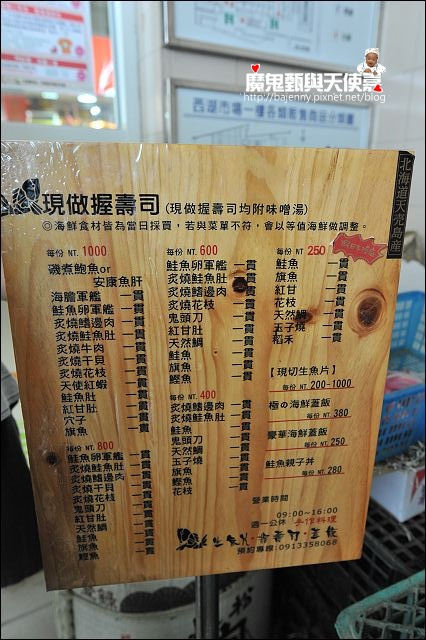 魔鬼甄與天使嘉
http://bajenny.pixnet.net/blog
西湖市場一樓各類販售商品分類圖
北海道天売島産
現做握壽司 (現做握壽司均附味噌湯)
◎海鮮食材皆為當日採買，若與菜單不符，會以等值海鮮做調整。
每份 NT. 1000
磯煮鮑魚or
安康魚肝
海膽軍艦 一貫
鮭魚卵軍艦 一貫
炙燒鰭邊肉 一貫
炙燒鮭魚肚 一貫
炙燒牛肉 一貫
炙燒干貝 一貫
炙燒花枝 一貫
天使紅蝦 一貫
鮭魚肚 一貫
紅甘肚 一貫
穴子 一貫
旗魚 一貫
每份 NT. 800
鮭魚卵軍艦 一貫
炙燒鮭魚肚 一貫
炙燒鰭邊肉 一貫
炙燒干貝 一貫
炙燒花枝 一貫
鬼頭刀 一貫
紅甘肚 一貫
天然鯛 一貫
鮭魚 一貫
旗魚 一貫
鰹魚 一貫
每份 NT. 600
鮭魚卵軍艦 一貫
炙燒鮭魚肚 一貫
炙燒鰭邊肉 一貫
炙燒花枝 一貫
鬼頭刀 一貫
紅甘肚 一貫
天然鯛 一貫
鮭魚 一貫
旗魚 一貫
鰹魚 一貫
每份 NT. 400
炙燒鰭邊肉 一貫
炙燒鮭魚肚 一貫
鮭魚 一貫
鬼頭刀 一貫
天然鯛 一貫
玉子燒 一貫
旗魚 一貫
鰹魚 一貫
花枝 一貫
每份 NT. 250
鮭魚 一貫
旗魚 一貫
紅甘 一貫
花枝 一貫
天然鯛 一貫
玉子燒 一貫
稻禾 一貫
【現切生魚片】
每份 NT. 200-1000
極の海鮮蓋飯
每份 NT. 380
豪華海鮮蓋飯
每份 NT. 250
鮭魚親子丼
每份 NT. 280
營業時間
09:00~16:00
週一公休 手作料理
預約專線：0913358068